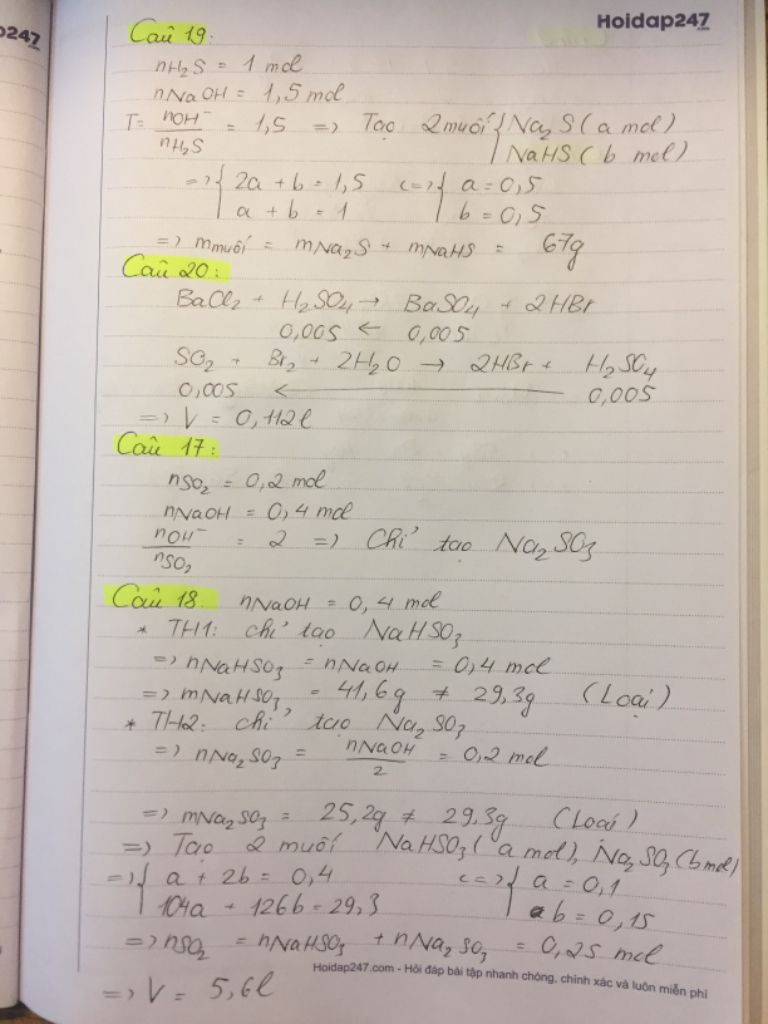 247
Hoidap247
Câu 19:
nH₂S = 1 mol
nNaOH = 1,5 mol
T = nOH⁻ / nH₂S = 1,5 => Tạo 2 muối { Na₂S (a mol)
NaHS (b mol)
=> { 2a + b = 1,5 <=> { a = 0,5
a + b = 1 b = 0,5
=> mmuối = mNa₂S + mNaHS = 67g
Câu 20:
BaCl₂ + H₂SO₄ → BaSO₄ + 2HBr
0,005 ← 0,005
SO₂ + Br₂ + 2H₂O → 2HBr + H₂SO₄
0,005 ← 0,005
=> V = 0,112l
Câu 17:
nSO₂ = 0,2 mol
nNaOH = 0,4 mol
nOH⁻ / nSO₂ = 2 => Chỉ tạo Na₂SO₃
Câu 18. nNaOH = 0,4 mol
* TH1: chỉ tạo NaHSO₃
=> nNaHSO₃ = nNaOH = 0,4 mol
=> mNaHSO₃ = 41,6g ≠ 29,3g (Loại)
* TH2: chỉ tạo Na₂SO₃
=> nNa₂SO₃ = nNaOH / 2 = 0,2 mol
=> mNa₂SO₃ = 25,2g ≠ 29,3g (Loại)
=> Tạo 2 muối NaHSO₃ (a mol), Na₂SO₃ (b mol)
=> { a + 2b = 0,4 <=> { a = 0,1
104a + 126b = 29,3 b = 0,15
=> nSO₂ = nNaHSO₃ + nNa₂SO₃ = 0,25 mol
Hoidap247.com - Hỏi đáp bài tập nhanh chóng, chính xác và luôn miễn phí
=> V = 5,6l